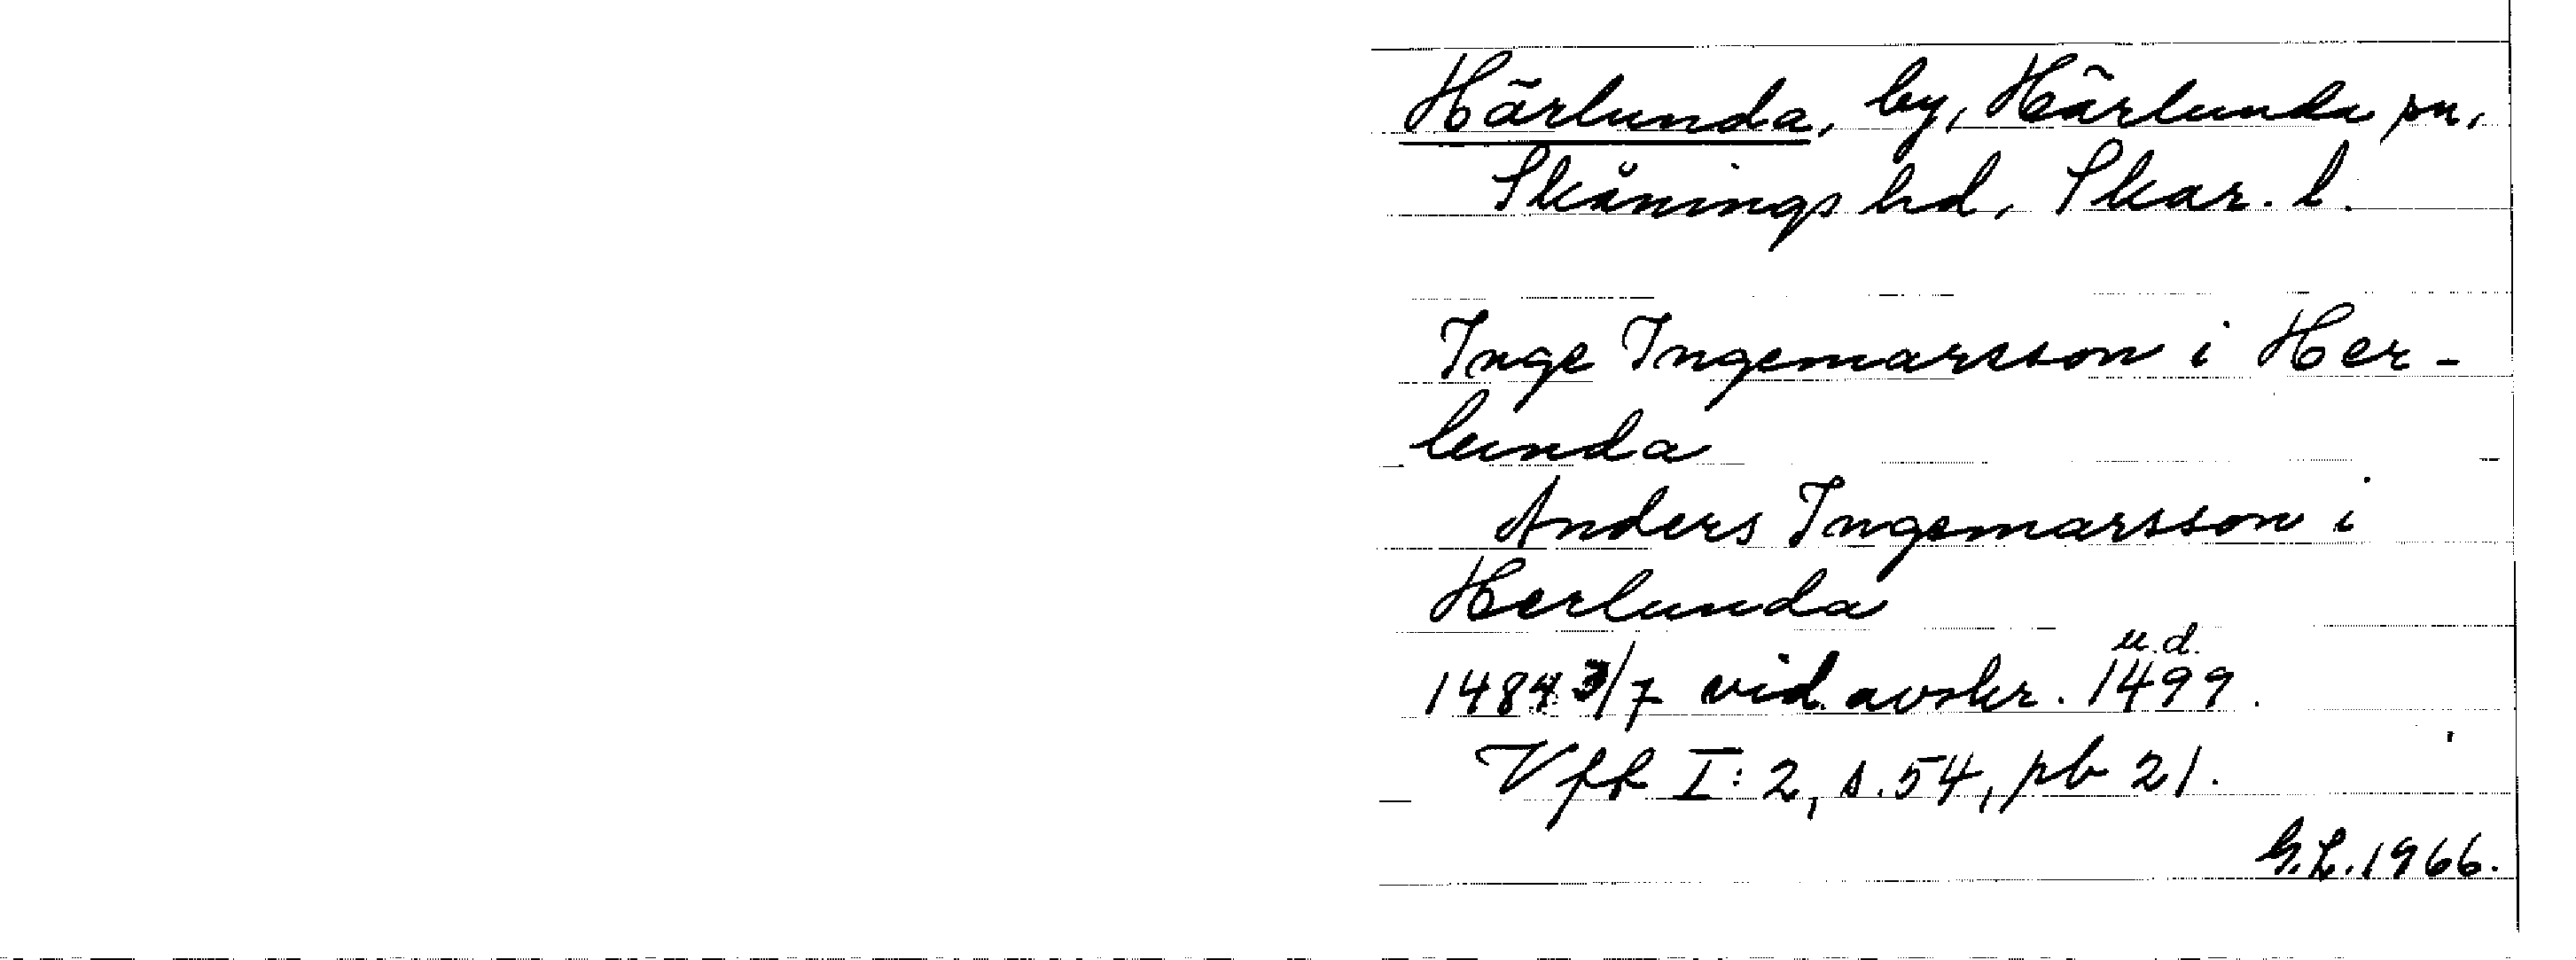 Härlunda, by, Härlunda sn,
Skånings hd, Skar. l.
Inge Ingemarsson i Her-
lunda
Anders Ingemarsson i
Herlunda
1484 3/7 vid. avskr. 1499 u.d.
Vff I: 2, s. 54, pb 21.
G.L. 1966.